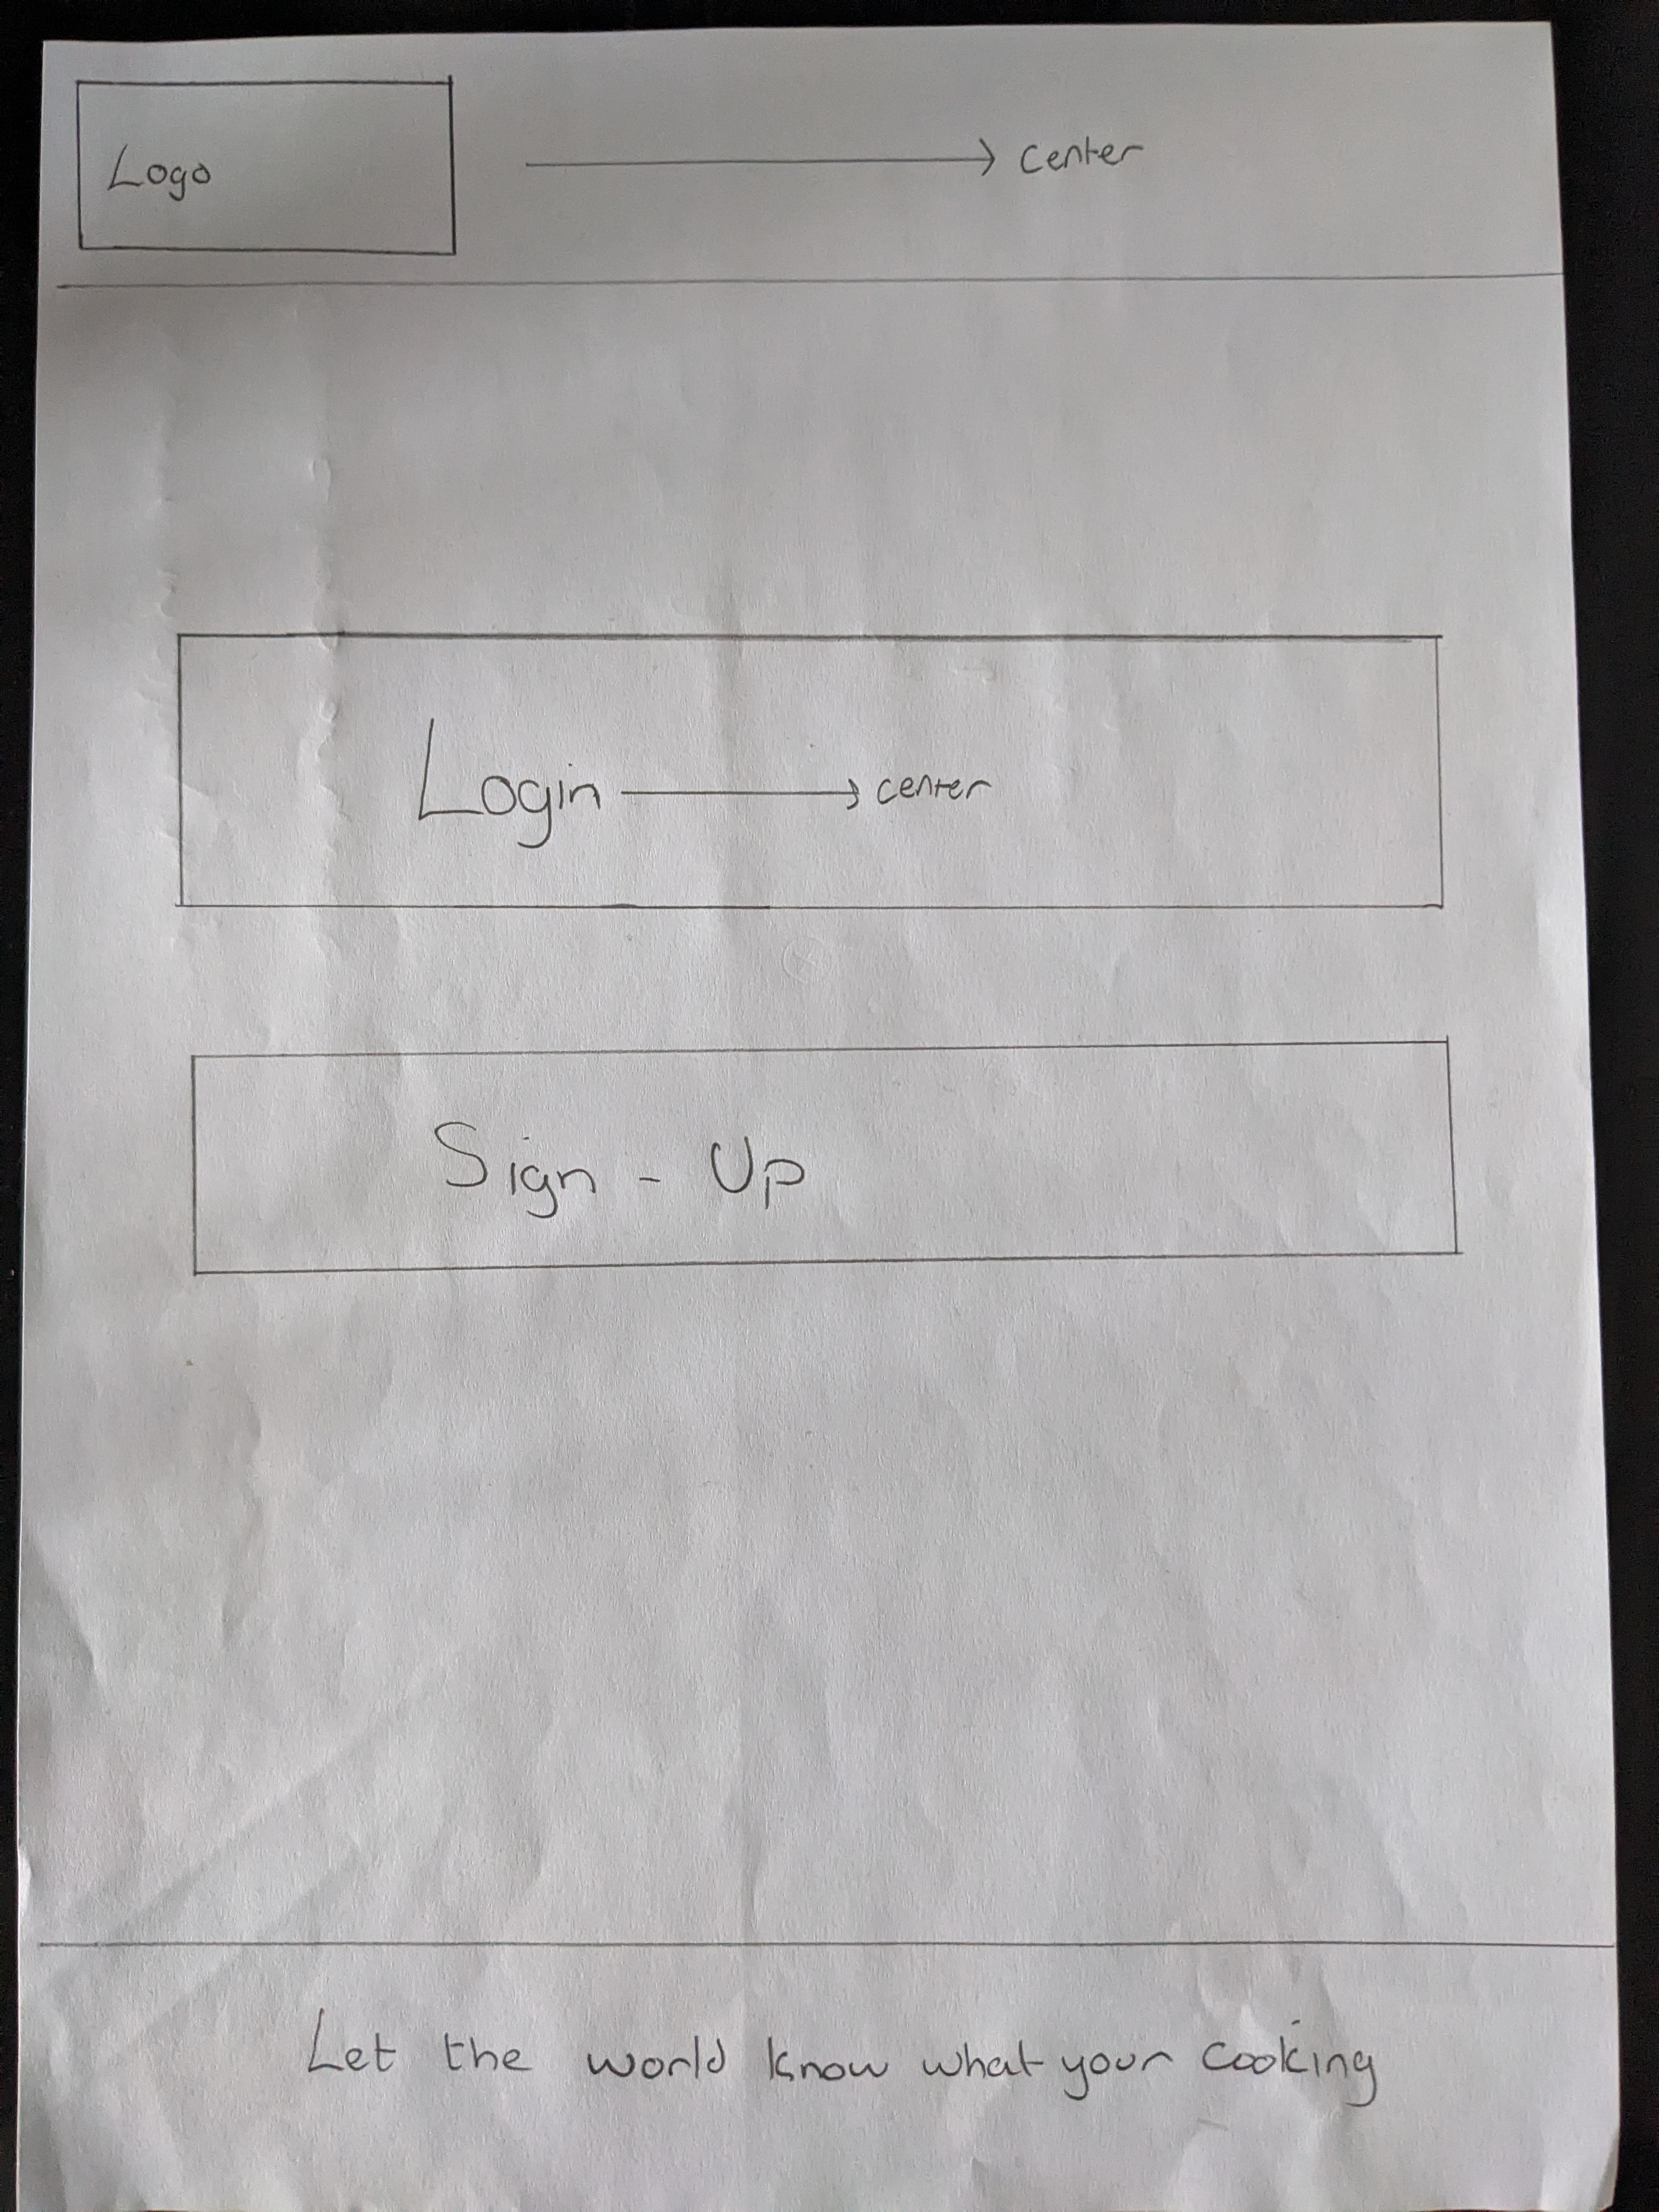 Logo → center
Login → center
Sign - Up
Let the world know what your cooking